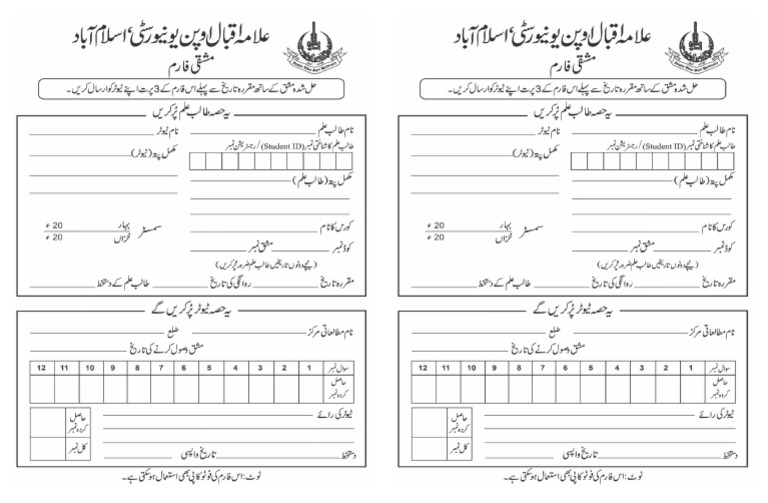 علامہ اقبال اوپن یونیورسٹی، اسلام آباد
مشقی فارم
حل شدہ مشق کے ساتھ مقررہ تاریخ سے پہلے اس فارم کے 3 پرت اپنے ٹیوٹر کو ارسال کریں۔
یہ حصہ طالب علم پُر کریں
نام طالب علم نام ٹیوٹر
طالب علم کا شناختی نمبر (Student ID) / رجسٹریشن نمبر
مکمل پتہ (ٹیوٹر)
مکمل پتہ (طالب علم)
کورس کا نام
سمسٹر بہار 20ء
خزاں 20ء
کوڈ نمبر مشق نمبر
(نیچے دونوں تاریخیں طالب علم ضرور پُر کریں)
مقررہ تاریخ روانگی کی تاریخ طالب علم کے دستخط
یہ حصہ ٹیوٹر پُر کریں گے
نام مطالعاتی مرکز ضلع
مشق وصول کرنے کی تاریخ
سوال نمبر 1 2 3 4 5 6 7 8 9 10 11 12
حاصل کردہ نمبر
ٹیوٹر کی رائے
حاصل کردہ نمبر
کل نمبر
دستخط تاریخ واپسی
نوٹ: اس فارم کی فوٹو کاپی بھی استعمال ہو سکتی ہے۔
علامہ اقبال اوپن یونیورسٹی، اسلام آباد
مشقی فارم
حل شدہ مشق کے ساتھ مقررہ تاریخ سے پہلے اس فارم کے 3 پرت اپنے ٹیوٹر کو ارسال کریں۔
یہ حصہ طالب علم پُر کریں
نام طالب علم نام ٹیوٹر
طالب علم کا شناختی نمبر (Student ID) / رجسٹریشن نمبر
مکمل پتہ (ٹیوٹر)
مکمل پتہ (طالب علم)
کورس کا نام
سمسٹر بہار 20ء
خزاں 20ء
کوڈ نمبر مشق نمبر
(نیچے دونوں تاریخیں طالب علم ضرور پُر کریں)
مقررہ تاریخ روانگی کی تاریخ طالب علم کے دستخط
یہ حصہ ٹیوٹر پُر کریں گے
نام مطالعاتی مرکز ضلع
مشق وصول کرنے کی تاریخ
سوال نمبر 1 2 3 4 5 6 7 8 9 10 11 12
حاصل کردہ نمبر
ٹیوٹر کی رائے
حاصل کردہ نمبر
کل نمبر
دستخط تاریخ واپسی
نوٹ: اس فارم کی فوٹو کاپی بھی استعمال ہو سکتی ہے۔